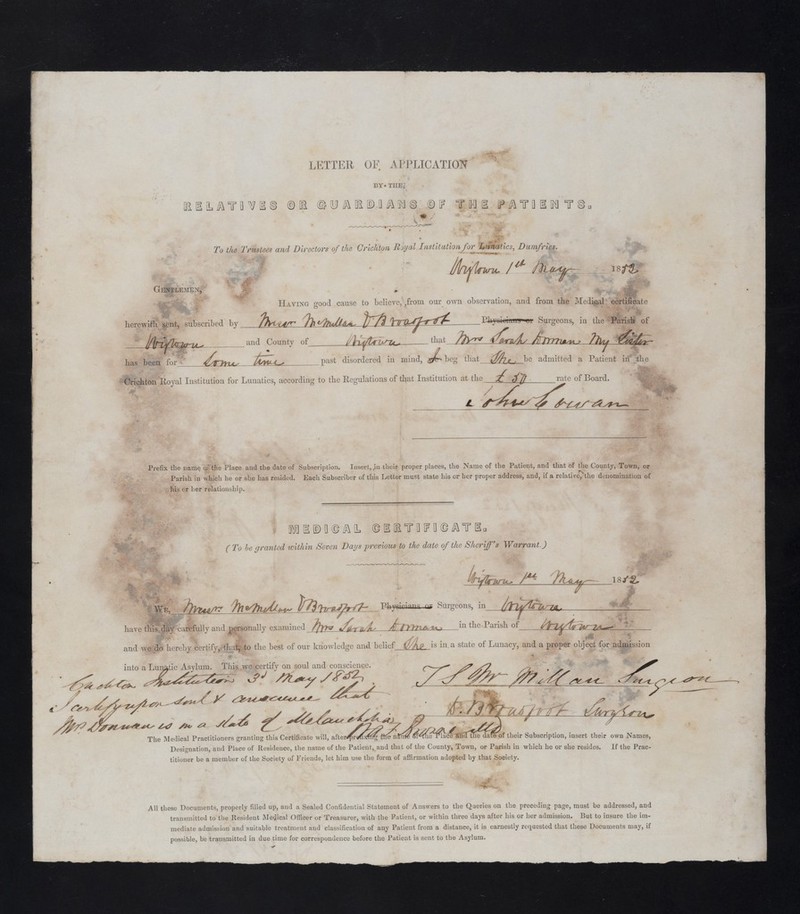 LETTER OF APPLICATION
BY THE
RELATIVES OR GUARDIANS OF THE PATIENTS.
To the Trustees and Directors of the Crichton Royal Institution for Lunatics, Dumfries.
Wigtown 1st May 1852
GENTLEMEN,
HAVING good cause to believe, from our own observation, and from the Medical certificate
herewith sent, subscribed by Messrs McMillan & Broadfoot Physicians or Surgeons, in the Parish of
Wigtown and County of Wigtown that Mrs Sarah Dornan My Sister
has been for some time past disordered in mind, & beg that She be admitted a Patient in the
Crichton Royal Institution for Lunatics, according to the Regulations of that Institution at the £ 50 rate of Board.
John Cowan
Prefix the name of the Place and the date of Subscription. Insert, in their proper places, the Name of the Patient, and that of the County, Town, or
Parish in which he or she has resided. Each Subscriber of this Letter must state his or her proper address, and, if a relative, the denomination of
his or her relationship.
MEDICAL CERTIFICATE.
(To be granted within Seven Days previous to the date of the Sheriff's Warrant.)
Wigtown 1st May 1852
WE, Messrs McMillan & Broadfoot Physicians or Surgeons, in Wigtown
have this day carefully and personally examined Mrs Sarah Dornan in the Parish of Wigtown
and we do hereby certify, that, to the best of our knowledge and belief She is in a state of Lunacy, and a proper object for admission
into a Lunatic Asylum. This we certify on soul and conscience.
T S McMillan Surgeon
D. Broadfoot Surgeon
Crichton Institution 3d May 1852
I certify upon soul & conscience that
Mrs Dornan is in a state of Melancholia
The Medical Practitioners granting this Certificate will, after prefixing the name of the Place and the date of their Subscription, insert their own Names,
Designation, and Place of Residence, the name of the Patient, and that of the County, Town, or Parish in which he or she resides. If the Prac-
titioner be a member of the Society of Friends, let him use the form of affirmation adopted by that Society.
All these Documents, properly filled up, and a Sealed Confidential Statement of Answers to the Queries on the preceding page, must be addressed, and
transmitted to the Resident Medical Officer or Treasurer, with the Patient, or within three days after his or her admission. But to insure the im-
mediate admission and suitable treatment and classification of any Patient from a distance, it is earnestly requested that these Documents may, if
possible, be transmitted in due time for correspondence before the Patient is sent to the Asylum.